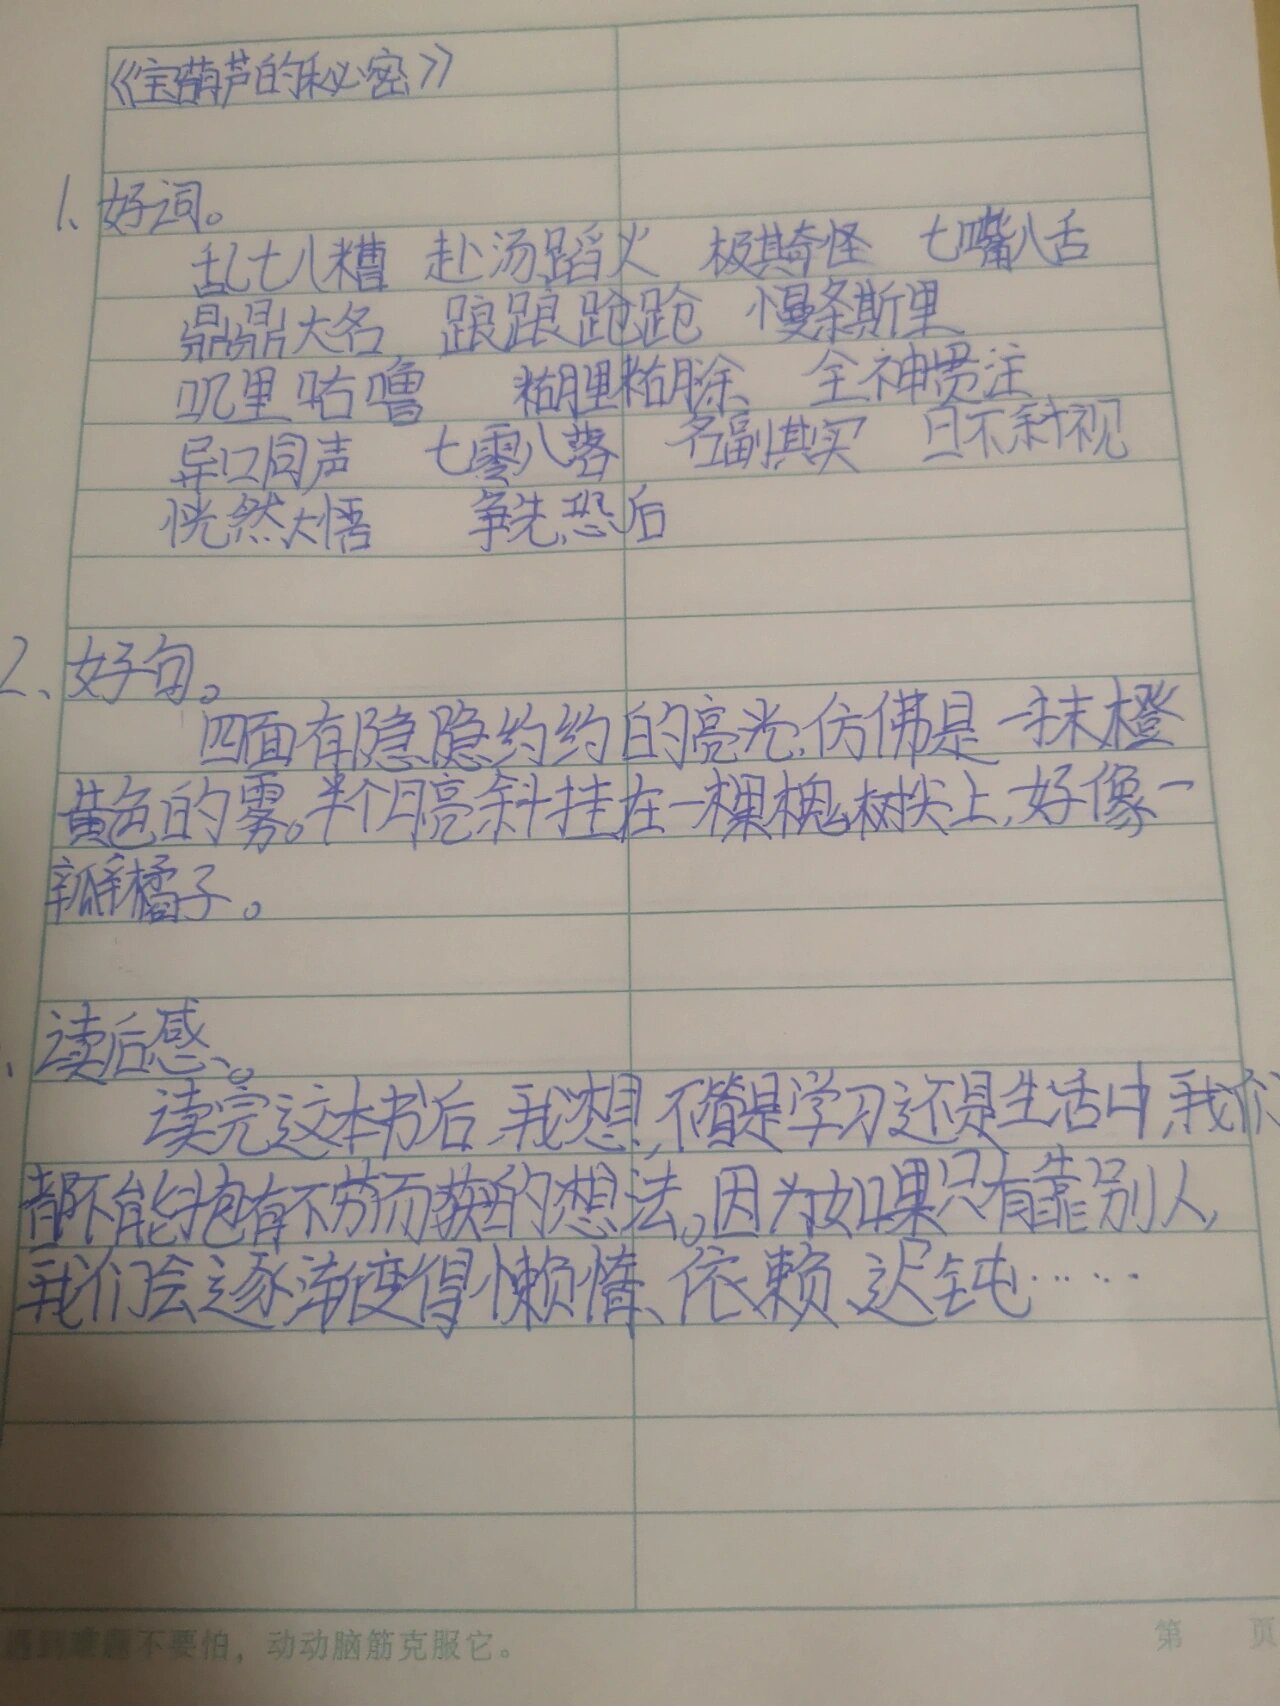 《宝葫芦的秘密》
1、好词。
乱七八糟 赴汤蹈火 极其奇怪 七嘴八舌
鼎鼎大名 踉踉跄跄 慢条斯里
叽里咕噜 糊里糊涂 全神贯注
异口同声 七零八落 名副其实 目不斜视
恍然大悟 争先恐后
2、好句。
四面有隐隐约约的亮光,仿佛是一抹橙
黄色的雾。半个月亮斜挂在一棵槐树尖上,好像一
瓣橘子。
、读后感。
读完这本书后,我想,不管是学习还是生活中,我们
都不能抱有不劳而获的想法。因为如果只有靠别人,
我们会逐渐变得懒惰、依赖、迟钝……
遇到难题不要怕，动动脑筋克服它。
第 页